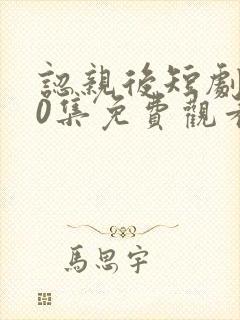 認親後短劇
0集免費觀看
馬思宇